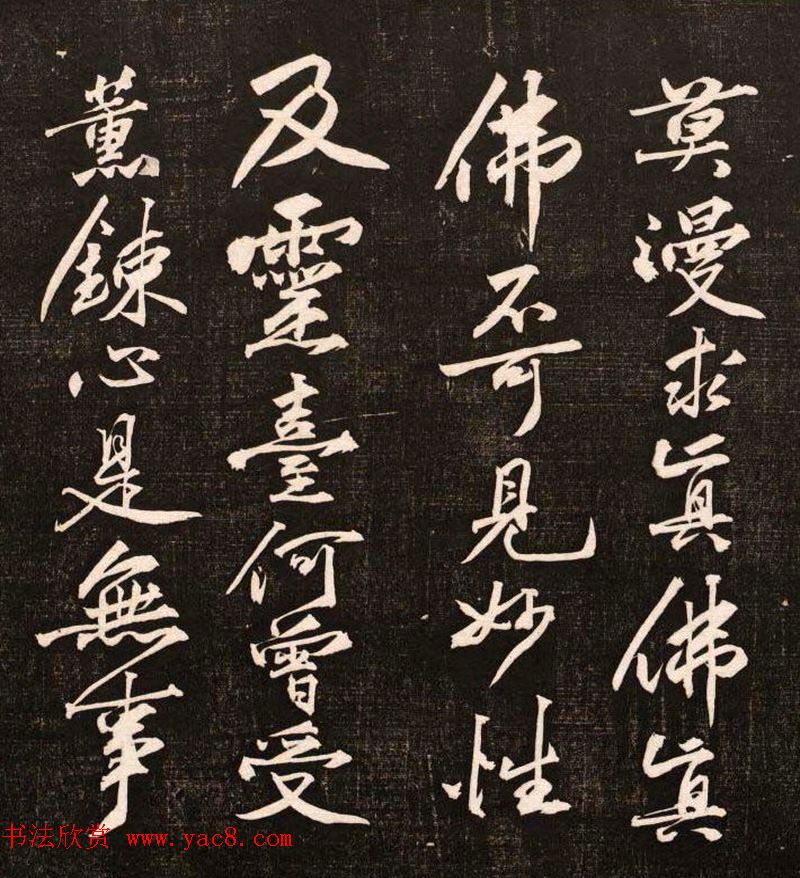 莫漫求真佛真
佛不可見妙性
及靈臺何曾受
薰鍊心是無事
书法欣赏 www.yac8.com